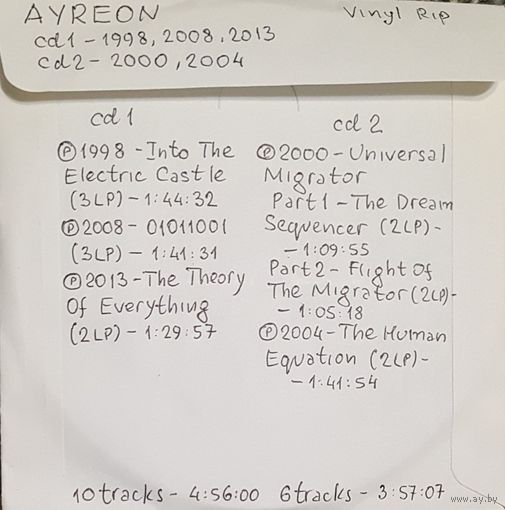 AYREON Vinyl Rip
cd1 - 1998, 2008, 2013
cd2 - 2000, 2004
cd 1
℗ 1998 - Into The
Electric Castle
(3LP) - 1:44:32
℗ 2008 - 01011001
(3LP) - 1:41:31
℗ 2013 - The Theory
Of Everything
(2LP) - 1:29:57
cd 2
℗ 2000 - Universal
Migrator
Part 1 - The Dream
Sequencer (2LP) -
- 1:09:55
Part 2 - Flight Of
The Migrator (2LP) -
- 1:05:18
℗ 2004 - The Human
Equation (2LP) -
- 1:41:54
10 tracks - 4:56:00 6 tracks - 3:57:07
www.ay.by